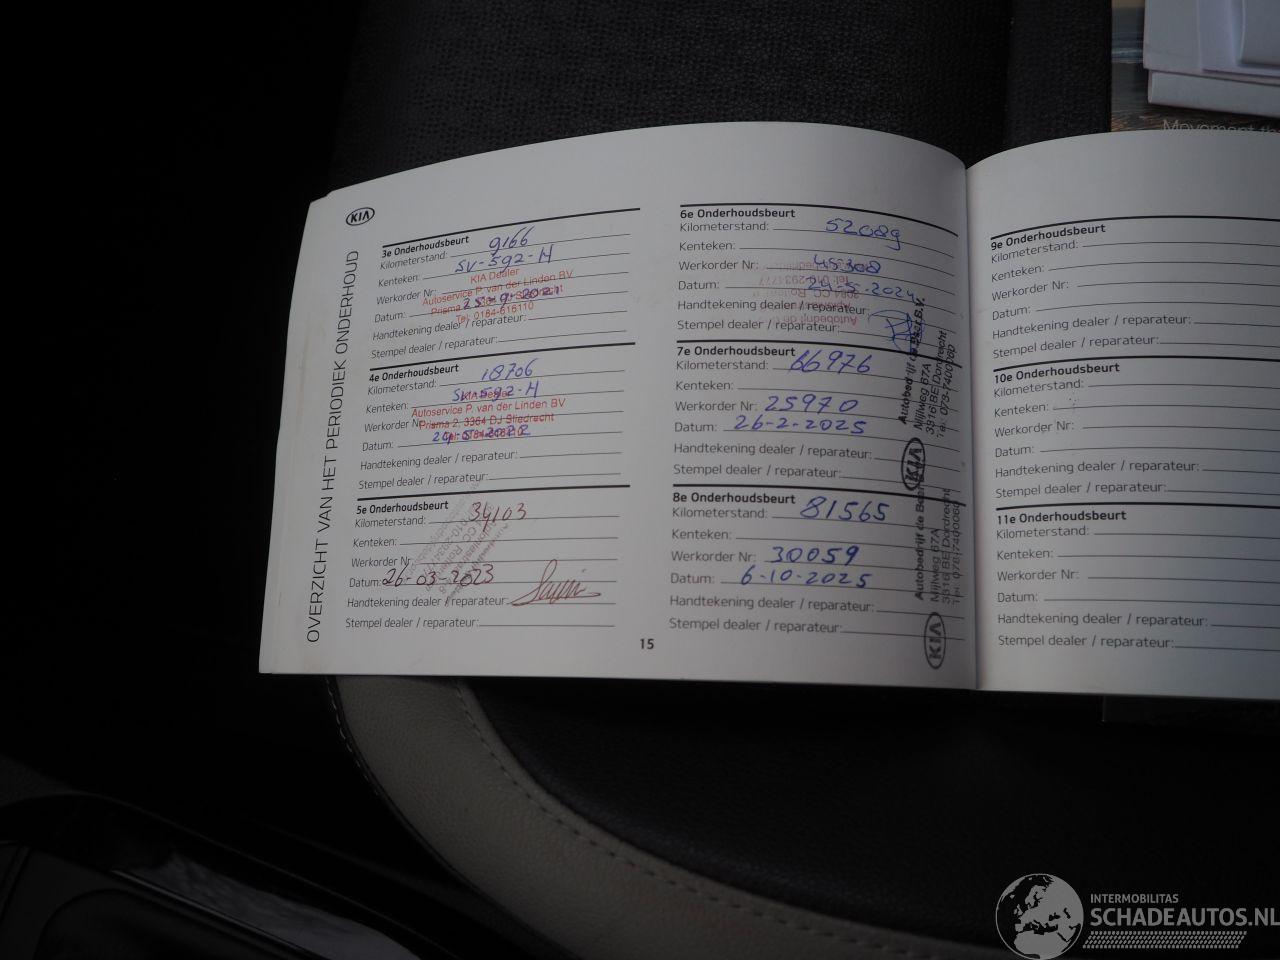 Movement th
KIA
OVERZICHT VAN HET PERIODIEK ONDERHOUD
3e Onderhoudsbeurt
Kilometerstand: 9166
Kenteken: SV-592-H
KIA Dealer
Werkorder Nr:
Autoservice P. van der Linden BV
Datum: 25-9-2021
Tel: 0184-616110
Handtekening dealer / reparateur:
Stempel dealer / reparateur:
4e Onderhoudsbeurt
Kilometerstand: 18706
Kenteken: SV-592-H
KIA Dealer
Autoservice P. van der Linden BV
Werkorder Nr:
Prisma 2, 3364 DJ Sliedrecht
Datum: 2022
Tel: 0184-616110
Handtekening dealer / reparateur:
Stempel dealer / reparateur:
5e Onderhoudsbeurt
Kilometerstand: 34103
Kenteken:
Werkorder Nr:
Datum: 26-03-2023
Handtekening dealer / reparateur:
Stempel dealer / reparateur:
15
6e Onderhoudsbeurt
Kilometerstand: 52089
Kenteken:
Werkorder Nr: 45308
Datum: 29-5-2024
Handtekening dealer / reparateur:
Stempel dealer / reparateur:
7e Onderhoudsbeurt
Kilometerstand: 66976
Kenteken:
Werkorder Nr: 25970
Datum: 26-2-2025
Handtekening dealer / reparateur:
Stempel dealer / reparateur:
Autobedrijf de Beer B.V.
Mijlweg 67A
3316 BE Dordrecht
KIA
8e Onderhoudsbeurt
Kilometerstand: 81565
Kenteken:
Werkorder Nr: 30059
Datum: 6-10-2025
Handtekening dealer / reparateur:
Stempel dealer / reparateur:
Autobedrijf de Beer
Mijlweg 67A
3316 BE Dordrecht
Tel. 078-7400060
KIA
9e Onderhoudsbeurt
Kilometerstand:
Kenteken:
Werkorder Nr:
Datum:
Handtekening dealer / reparateur:
Stempel dealer / reparateur:
10e Onderhoudsbeurt
Kilometerstand:
Kenteken:
Werkorder Nr:
Datum:
Handtekening dealer / reparateur:
Stempel dealer / reparateur:
11e Onderhoudsbeurt
Kilometerstand:
Kenteken:
Werkorder Nr:
Datum:
Handtekening dealer / reparateur:
Stempel dealer / reparateur:
INTERMOBILITAS
SCHADEAUTOS.NL